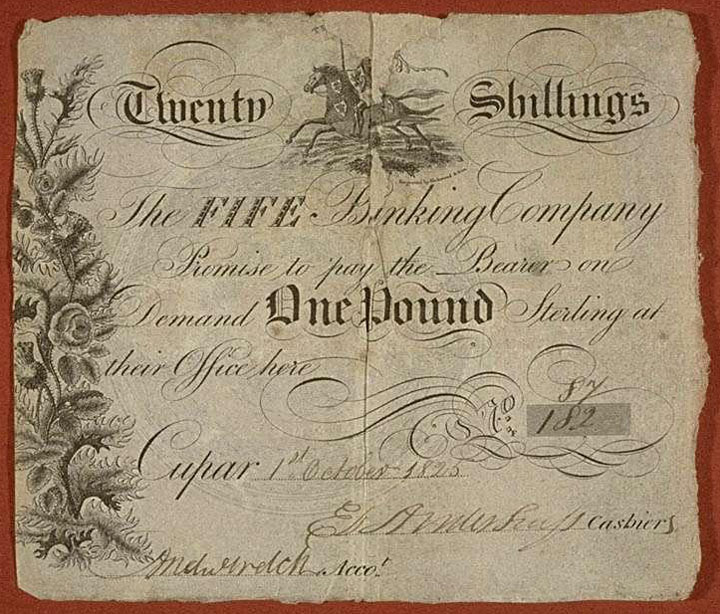 Twenty Shillings
The FIFE Banking Company
Promise to pay the Bearer on
Demand One Pound Sterling at
their Office here
87
No. 182
Cupar 1st October 1825
Cashier
Accot.